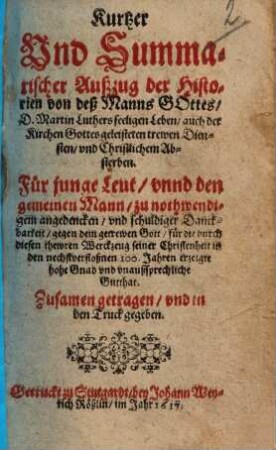 2
Kurtzer
Und Summa-
rischer Außzug der Histo-
rien von deß Manns GOttes/
D. Martin Luthers seeligen Leben/ auch der
Kirchen Gottes geleisteten trewen Dien-
sten/ vnd Christlichem Ab-
sterben.
Für junge Leut/ vnnd den
gemeinen Mann/ zu nothwendi-
gem angedencken/ vnd schuldiger Danck-
barkeit/ gegen dem getrewen Gott/ für die durch
diesen thewren Werckzeug seiner Christenheit in
den nechstverfloßnen 100. Jahren erzeigte
hohe Gnad vnd vnaußsprechliche
Gutthat.
Zusamen getragen/ vnd in
den Truck gegeben.
Getruckt zu Stutgardt/ bey Johann Wey-
rich Rößlin/ im Jahr 1617.